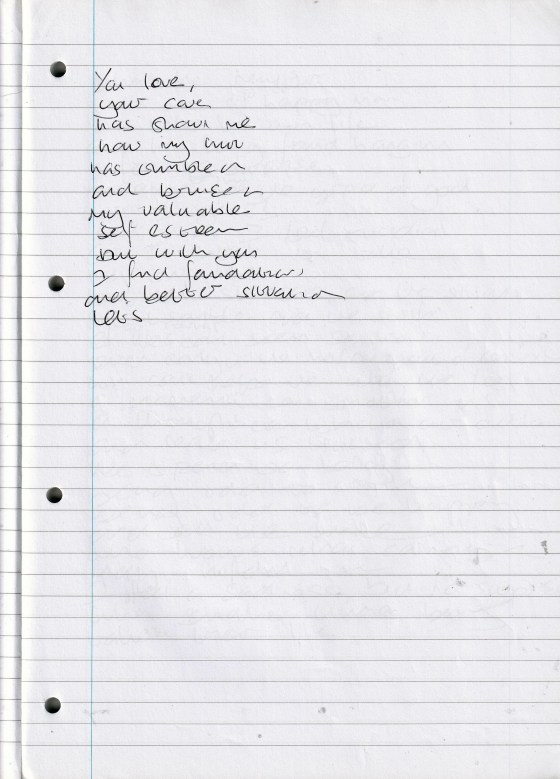 You love,
your care
has shown me
how my
has crumbled
and bruised
my valuable
self esteem
but with you
I find foundations
and better situation
Lets